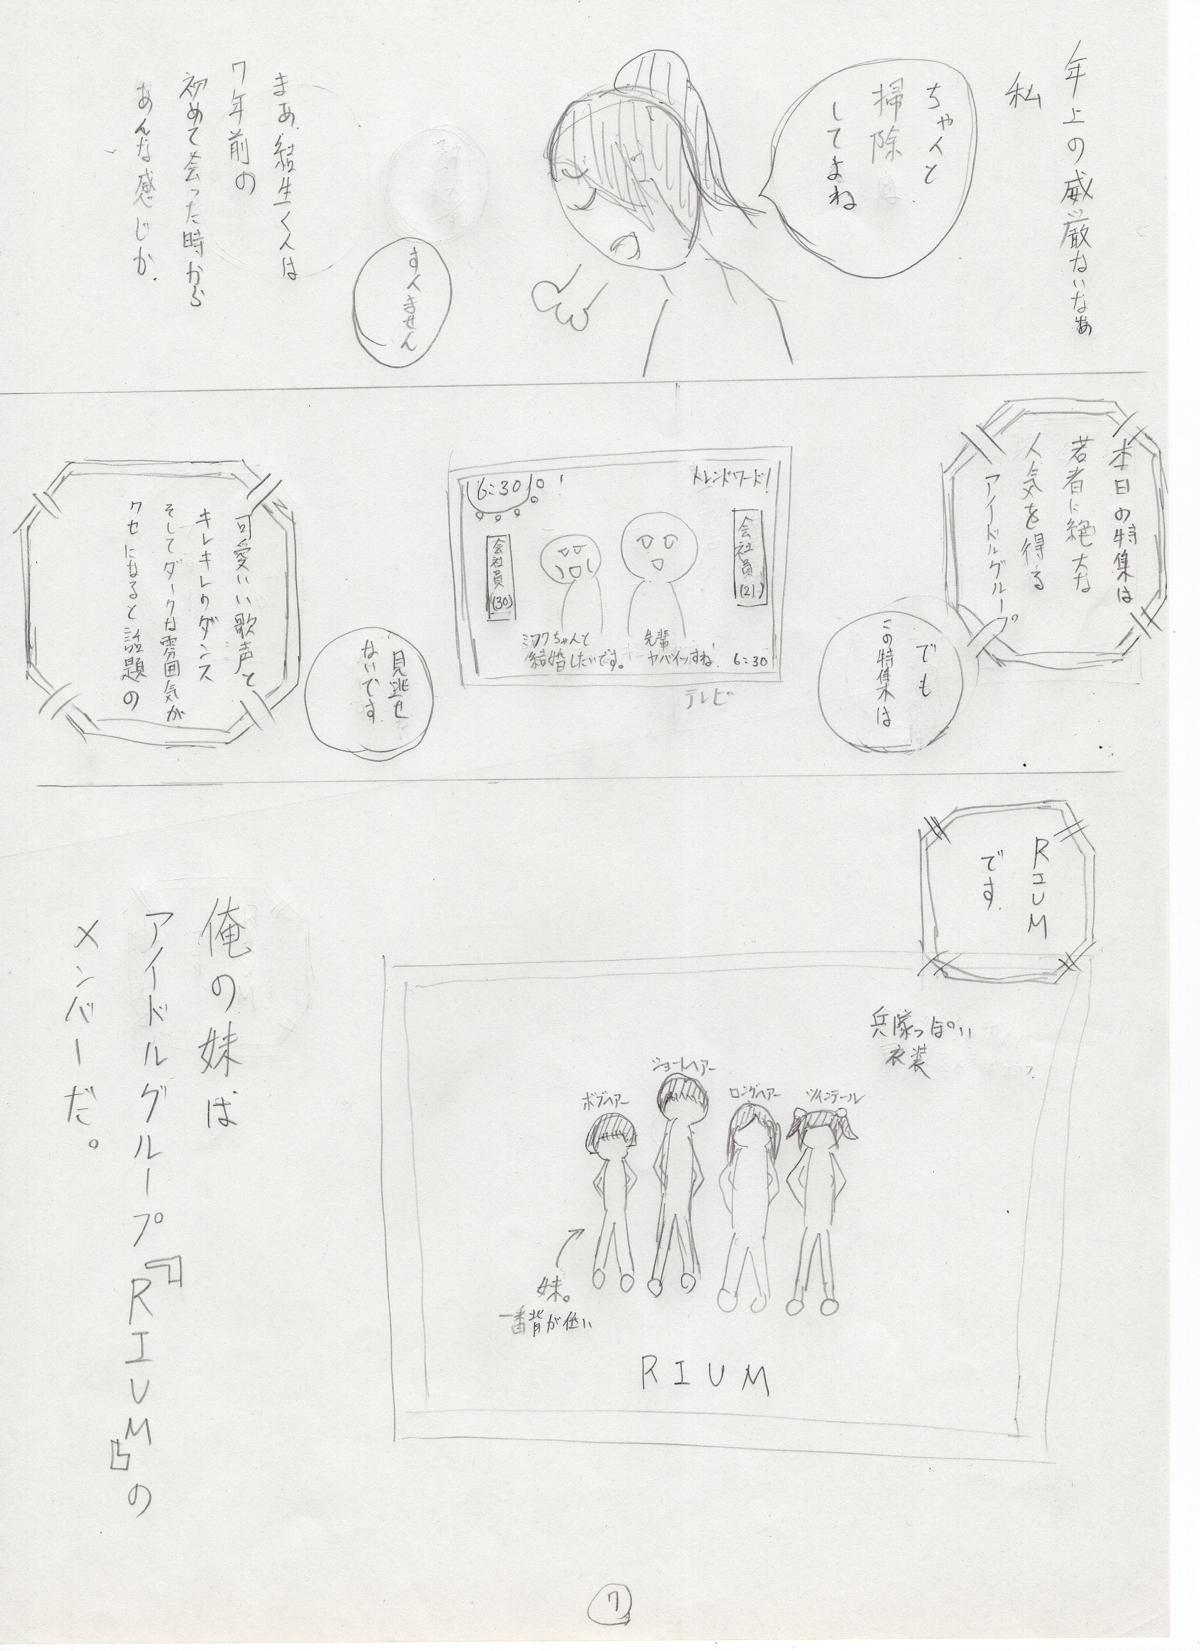 年上の威厳ないなぁ
私
ちゃんと
掃除は
してよね
すんません
まあ、結生くんは
7年前の
初めて会った時から
あんな感じか
本日の特集は
若者に絶大な
人気を得る
アイドルグループ
でも
この特集は
トレンドワード!
会社員(21)
6:30
会社員(30)
先輩
ヤバイッすね
ちゃんと
結婚したいです。
6:30
テレビ
見逃せ
ないです
可愛いい歌声と
キレキレのダンス
そしてダークな雰囲気が
クセになると話題の
RIUM
です
兵隊っぽい
衣装
ツインテール
ロングヘアー
ショートヘアー
ボブヘアー
妹。
一番背が低い
RIUM
俺の妹は
アイドルグループ『RIUM』の
メンバーだ。
7